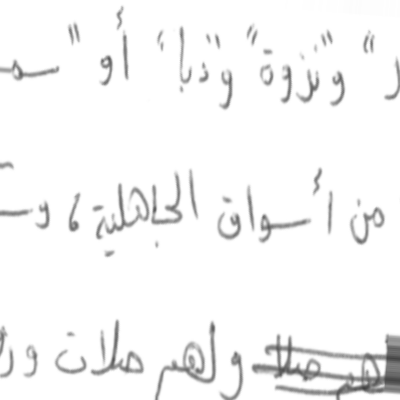 " و"نزوة" و"دبا" أو "
من أسواق الجاهلية، و
ولهم صلات